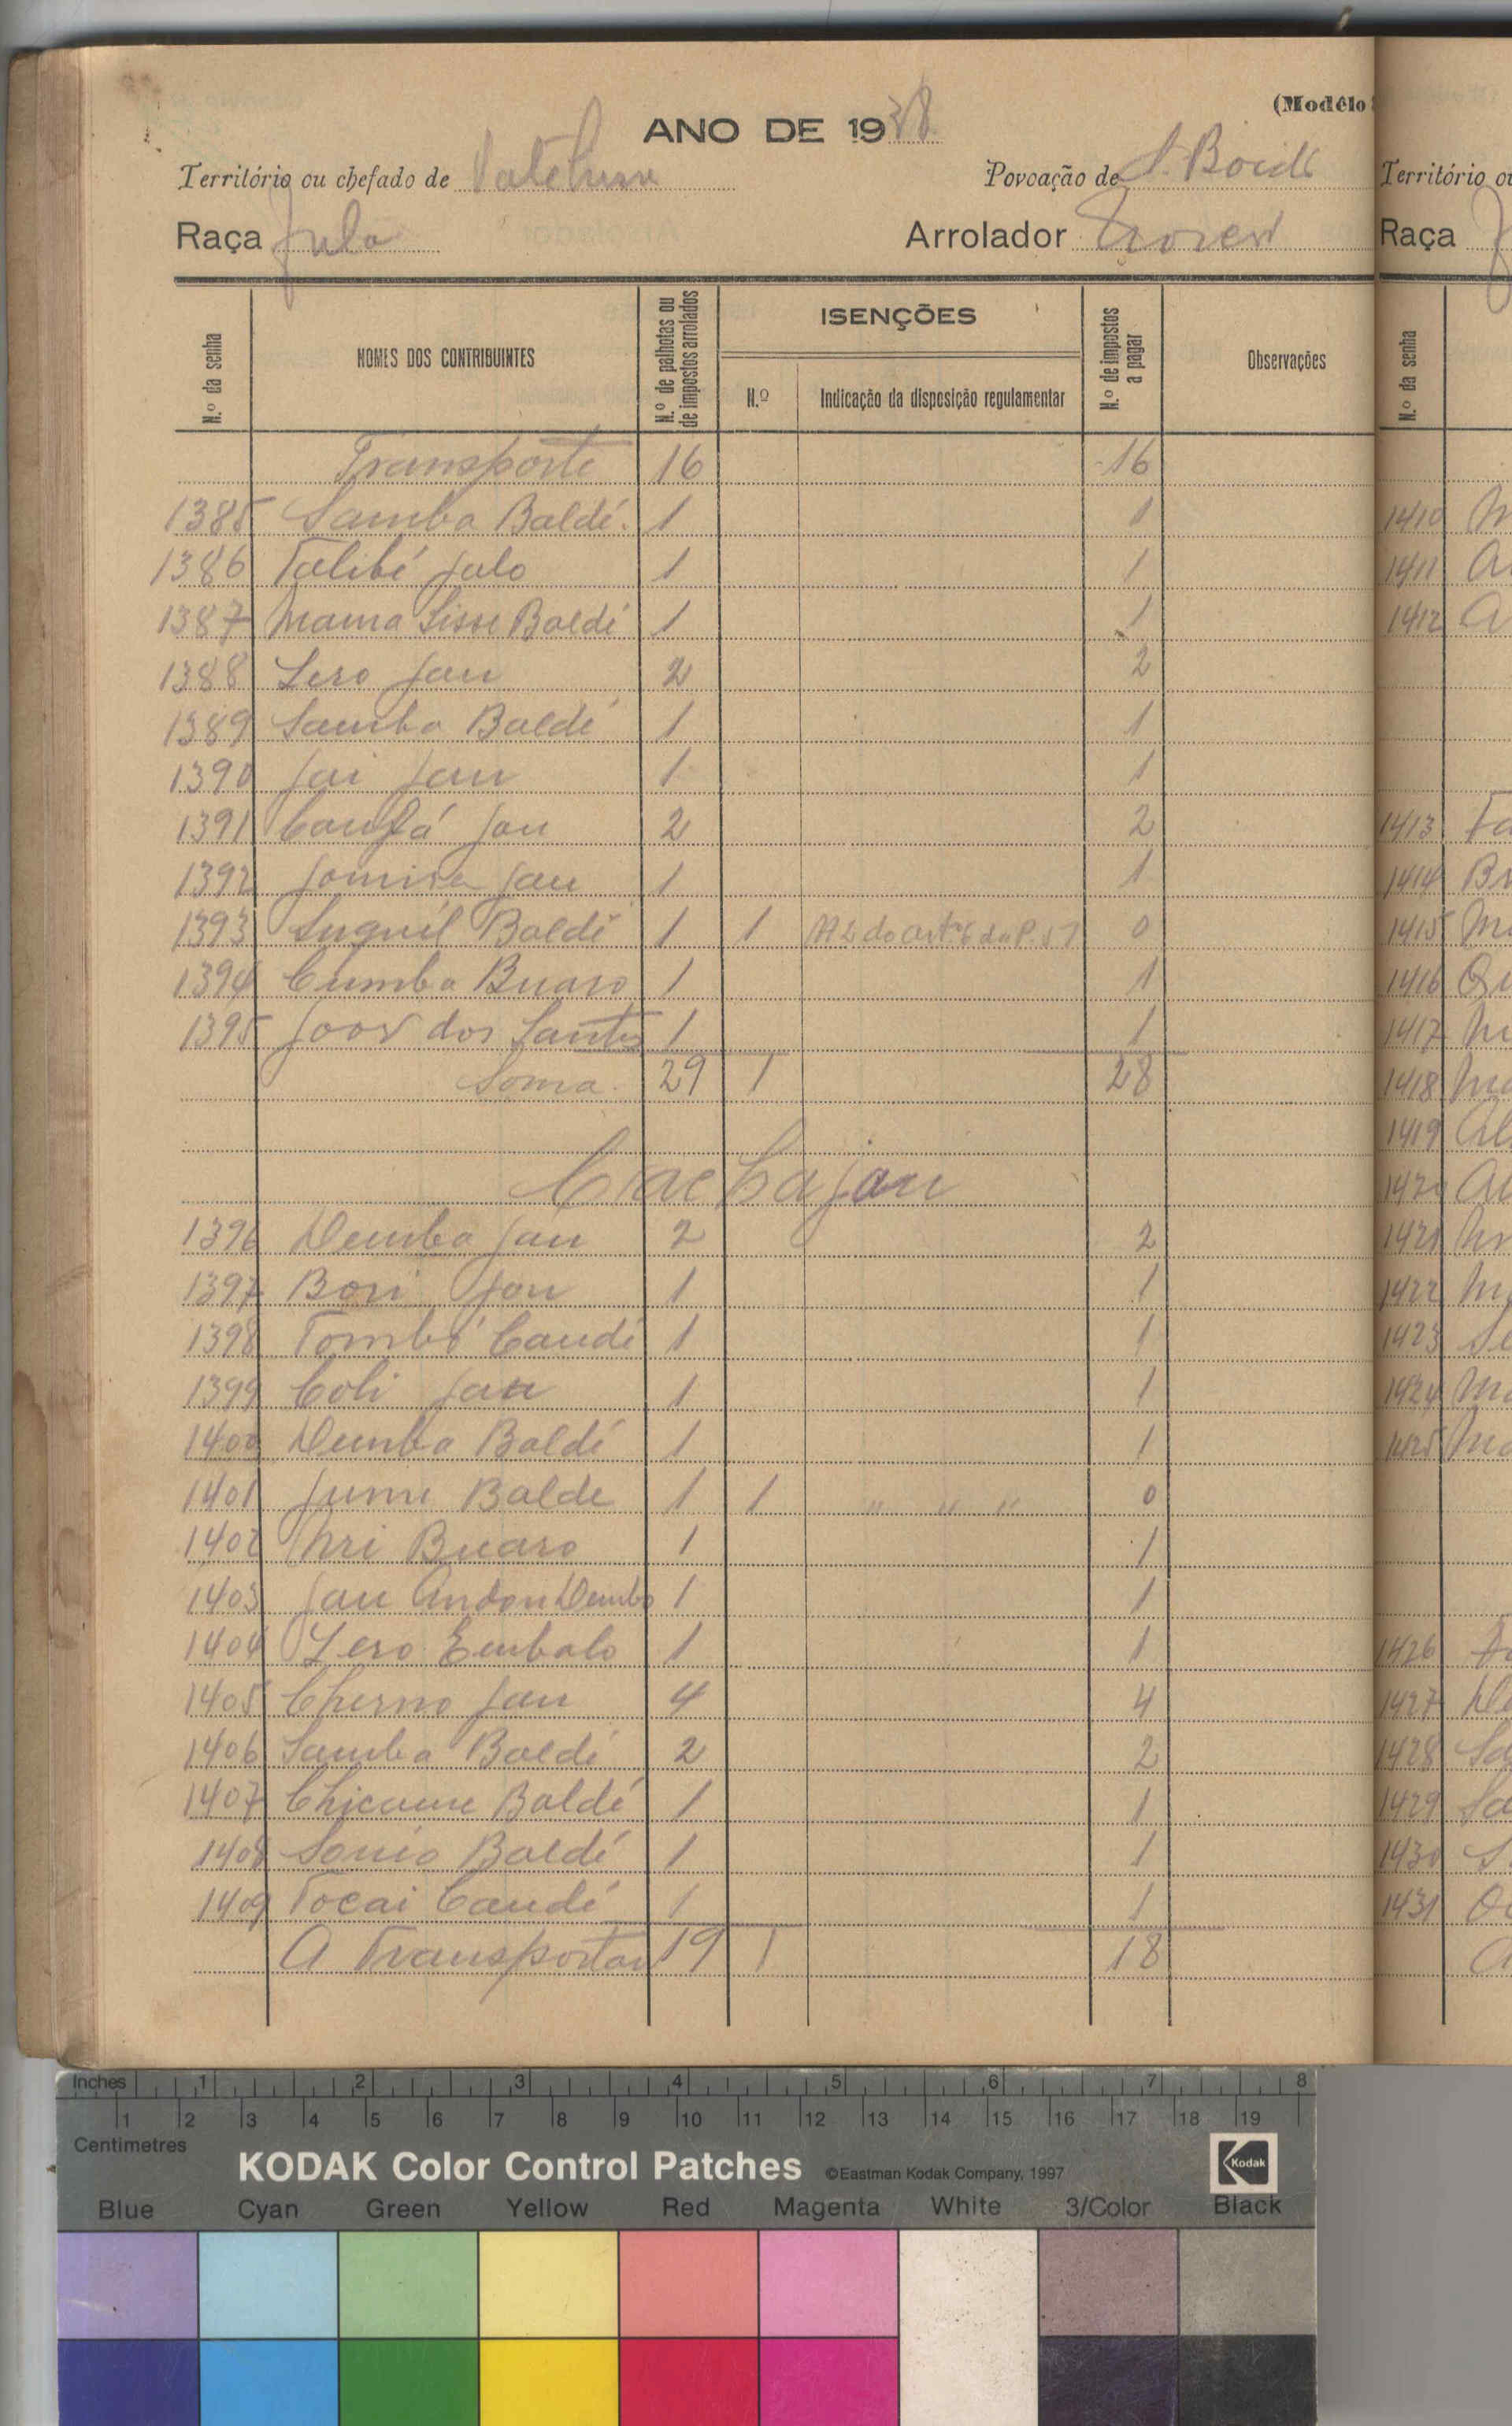 (Modêlo
ANO DE 1938
Território ou chefado de
Povoação de S.
Raça Fula
Arrolador
N.º da senha
NOMES DOS CONTRIBUINTES
N.º de palhotas ou de impostos arrolados
ISENÇÕES
N.º
Indicação da disposição regulamentar
N.º de impostos a pagar
Observações
Transporte 16 16
1385 Samba Baldé 1 1
1386 Talibé Jalo 1 1
1387 Mama Sisse Baldé 1 1
1388 Sero Jau 2 2
1389 Samba Baldé 1 1
1390 Jai Jau 1 1
1391 Jau 2 2
1392 Jau 1 1
1393 Baldé 1 1 do art.º 6 do 0
1394 Cumba Buaro 1 1
1395 João dos Santos 1 1
Soma 29 1 28
1396 Demba Jau 2 2
1397 Bori Jau 1 1
1398 Tombo Candé 1 1
1399 Coli Jau 1 1
1400 Demba Baldé 1 1
1401 Baldé 1 1 " " " 0
1402 Buaro 1 1
1403 Jau Demba 1 1
1404 Sero Embalo 1 1
1405 Cherno Jau 4 4
1406 Samba Baldé 2 2
1407 Chicaune Baldé 1 1
1408 Baldé 1 1
1409 Tocai Candé 1 1
A Transportar 19 1 18
Território ou
Raça
N.º da senha
1410
1411
1412
1413
1414
1415
1416
1417
1418
1419
1420
1421
1422
1423
1424
1425
1426
1427
1428
1429
1430
1431
Inches 1 2 3 4 5 6 7 8
1 2 3 4 5 6 7 8 9 10 11 12 13 14 15 16 17 18 19
Centimetres
KODAK Color Control Patches ©Eastman Kodak Company, 1997 Kodak
Blue Cyan Green Yellow Red Magenta White 3/Color Black